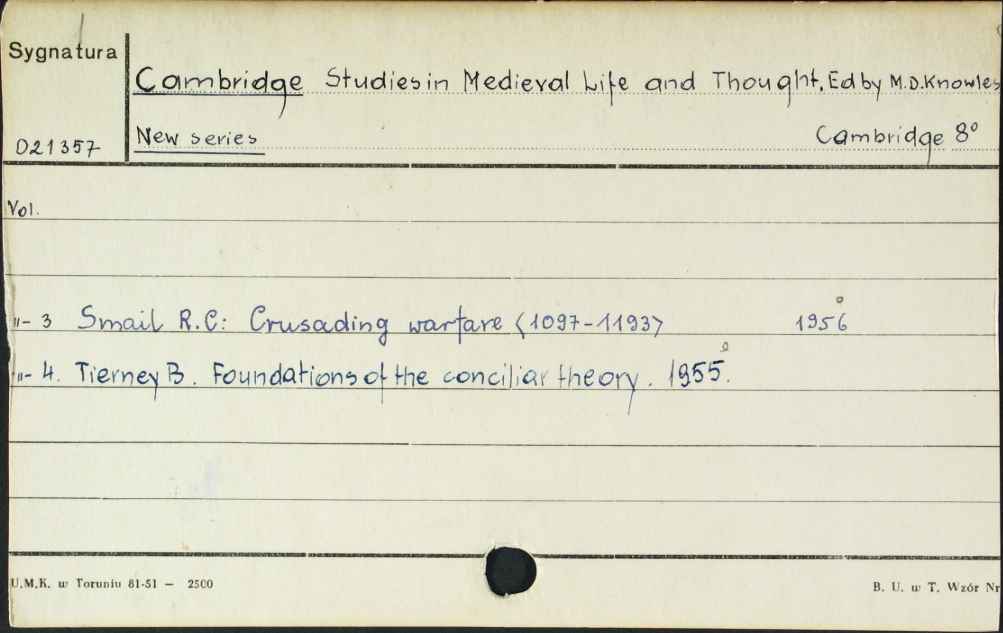 Sygnatura
Cambridge Studies in Medieval Life and Thought. Ed by M.D. Knowles
New series Cambridge 8°
021357
Vol.
"- 3 Smail R.C: Crusading warfare <1097-1193> 1956
"- 4. Tierney B. Foundations of the conciliar theory. 1955.
U.M.K. w Toruniu 81-51 — 2500 B. U. w T. Wzór Nr